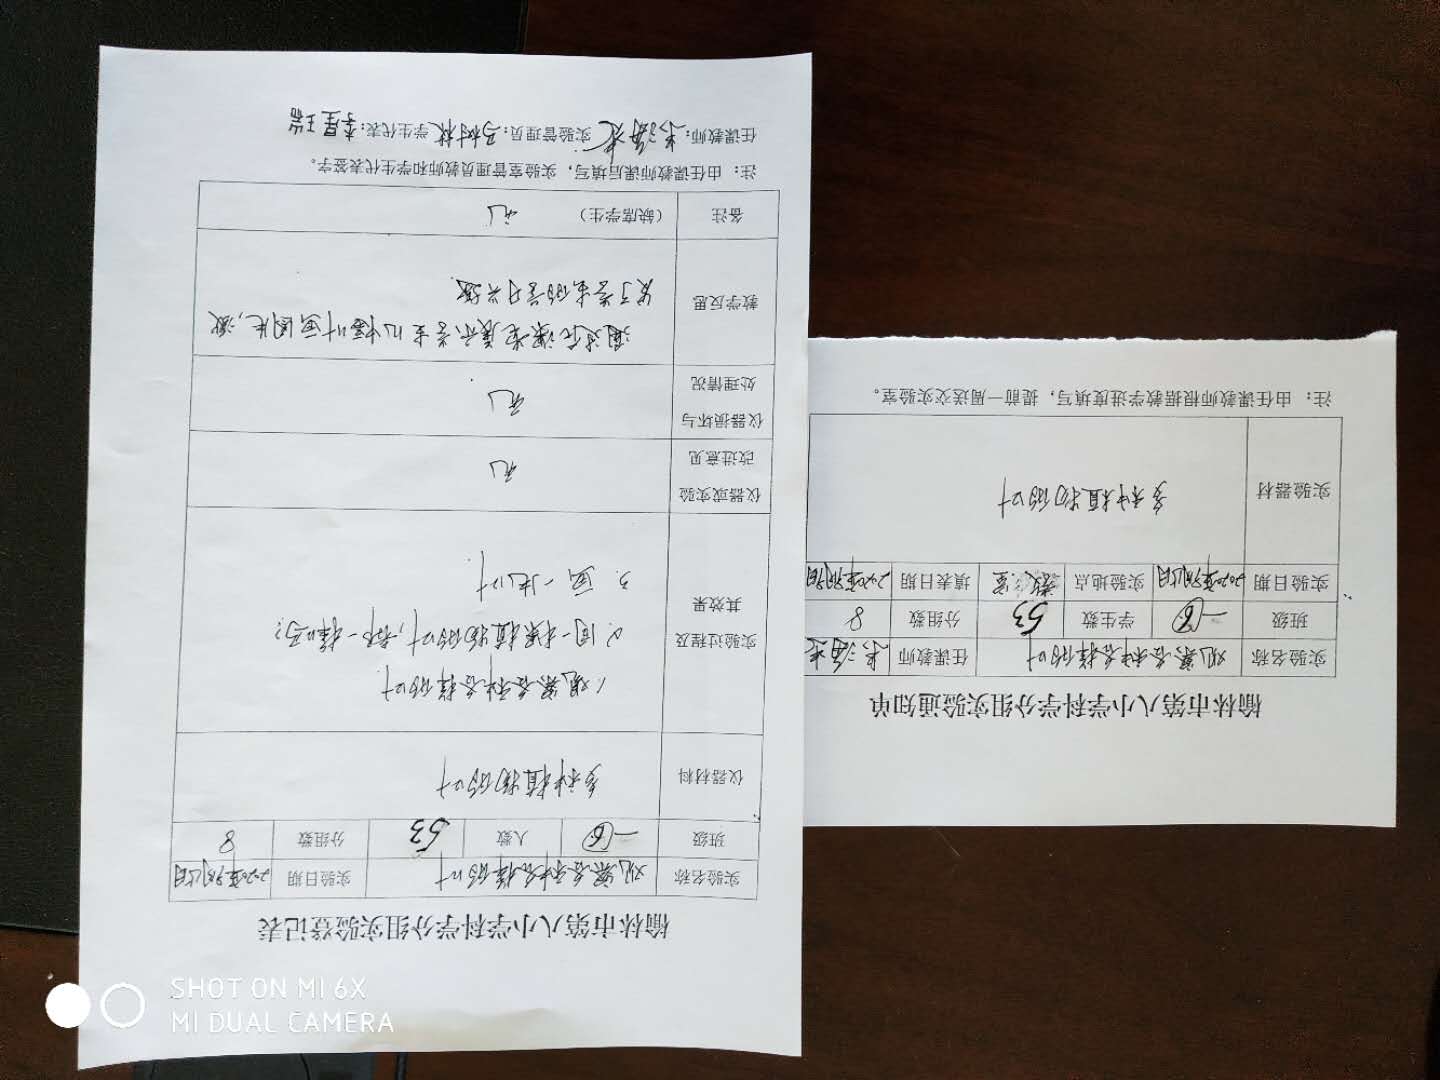 榆林市第八小学科学分组实验登记表
实验名称 观察各种各样的叶 实验日期
班级 一(6) 人数 53 分组数 8
仪器材料 多种植物的叶
实验过程及其效果
1.观察各种各样的叶.
2.同一棵植物的叶,都一样吗?
3.画一片叶.
仪器或实验改进意见 无
仪器损坏与处理情况 无
教学反思
通过在课堂展示学生
叶画图片,激
发了学生的学习兴趣.
备注 (缺席学生) 无
注:由任课教师课后填写,实验室管理员教师和学生代表签字。
任课教师: 实验管理员: 学生代表:李星瑞
榆林市第八小学科学分组实验通知单
实验名称 观察各种各样的叶 任课教师
班级 一(6) 学生数 53 分组数 8
实验日期 实验地点 教室 填表日期
实验器材 多种植物的叶
注:由任课教师根据教学进度填写,提前一周送交实验室。
SHOT ON MI 6X
MI DUAL CAMERA